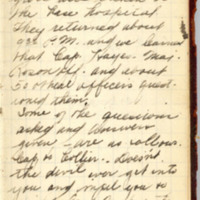 the base hospital
They returned about
9:00 P.M. and we learned
that Cap. Hayes. Maj.
and about
60 other officers quest-
ioned them.
Some of the questions
asked and answers
given, are as follows.
Cap. Collier. Doesn't
the devil ever get into
you and impel you to